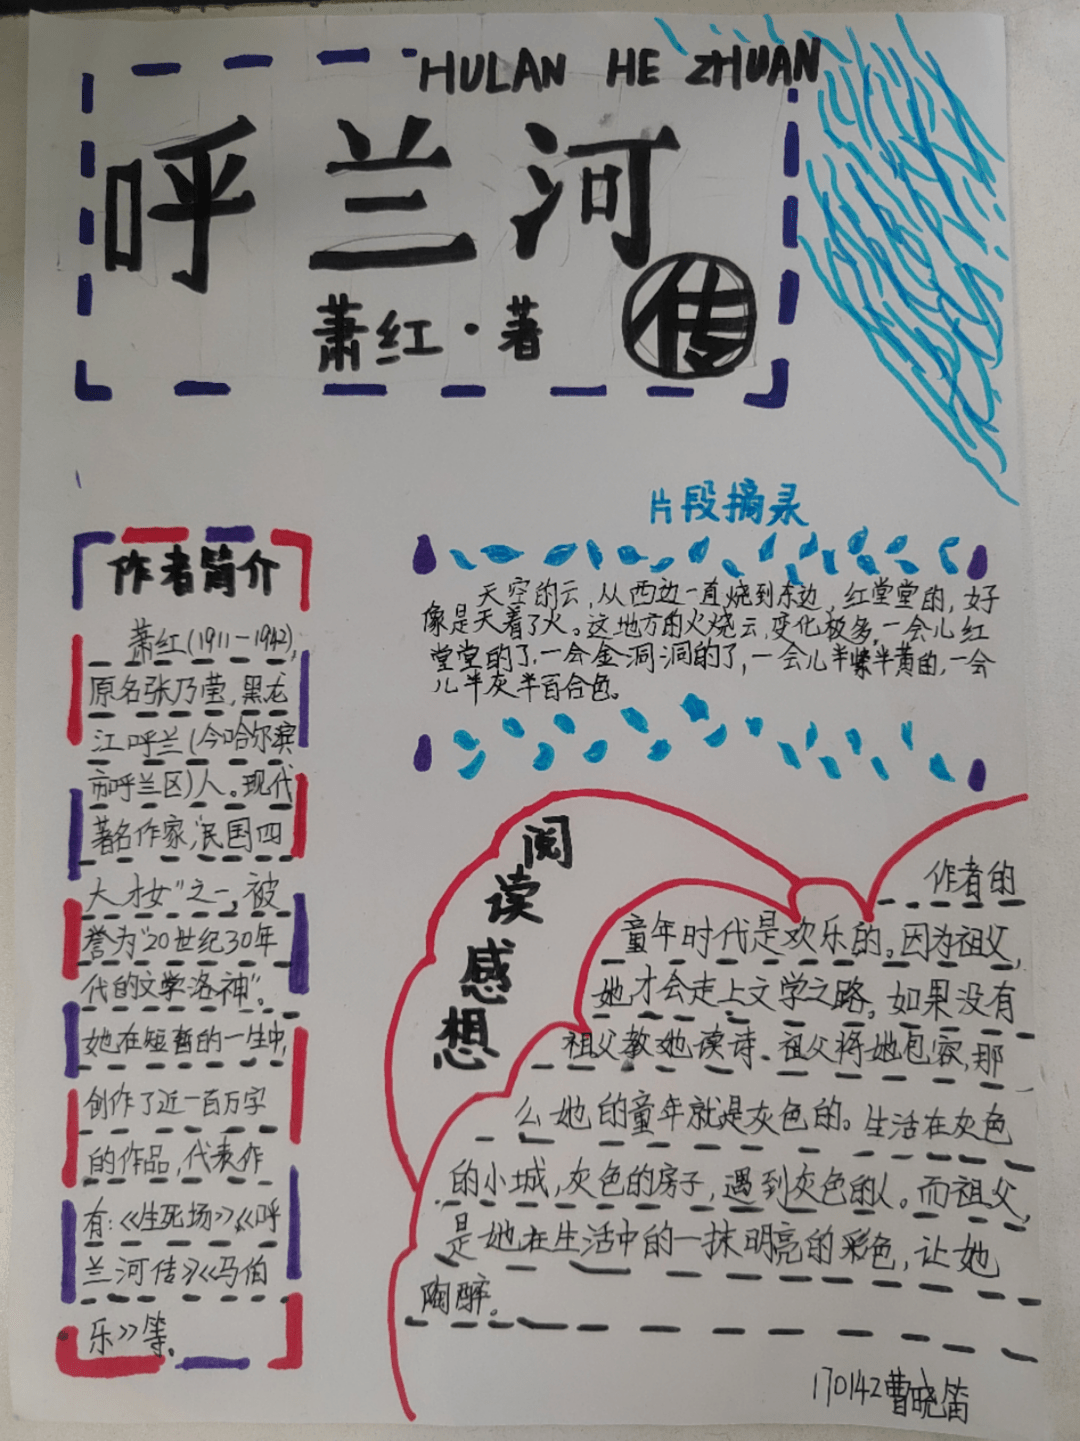 HULAN HE ZHUAN
呼兰河
传
萧红·著
作者简介
萧红(1911-1942),
原名张乃莹,黑龙
江呼兰(今哈尔滨
市呼兰区)人。现代
著名作家,“民国四
大才女”之一,被
誉为“20世纪30年
代的文学洛神”。
她在短暂的一生中,
创作了近一百万字
的作品,代表作
有:《生死场》《呼
兰河传》《马伯
乐》等.
片段摘录
天空的云,从西边一直烧到东边,红堂堂的,好
像是天着了火。这地方的火烧云,变化极多,一会儿红
堂堂的了,一会金洞洞的了,一会儿半紫半黄的,一会
儿半灰半百合色。
阅读感想
作者的
童年时代是欢乐的。因为祖父,
她才会走上文学之路。如果没有
祖父教她读诗、祖父将她包容,那
么她的童年就是灰色的。生活在灰色
的小城,灰色的房子,遇到灰色的人。而祖父,
是她在生活中的一抹明亮的彩色,让她
陶醉。
170142曹晓笛